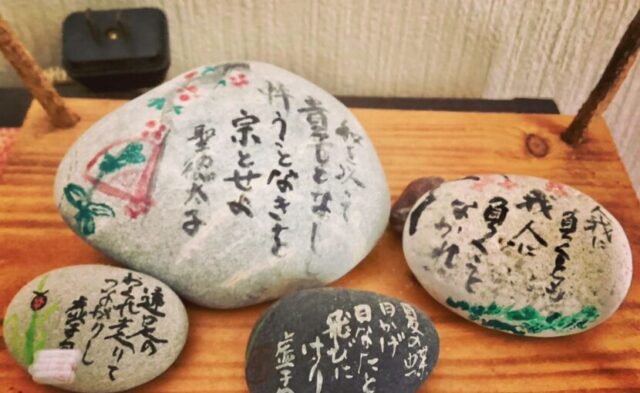 和を以って
貴しとなし
忤うことなきを
宗とせよ
聖徳太子
人我に
負くとも
我人に
負くこと
なかれ
遠足の
おくれ走りて
つながりし
虚子
夏の蝶
日かげ
日なたと
飛びに
けり
虚子